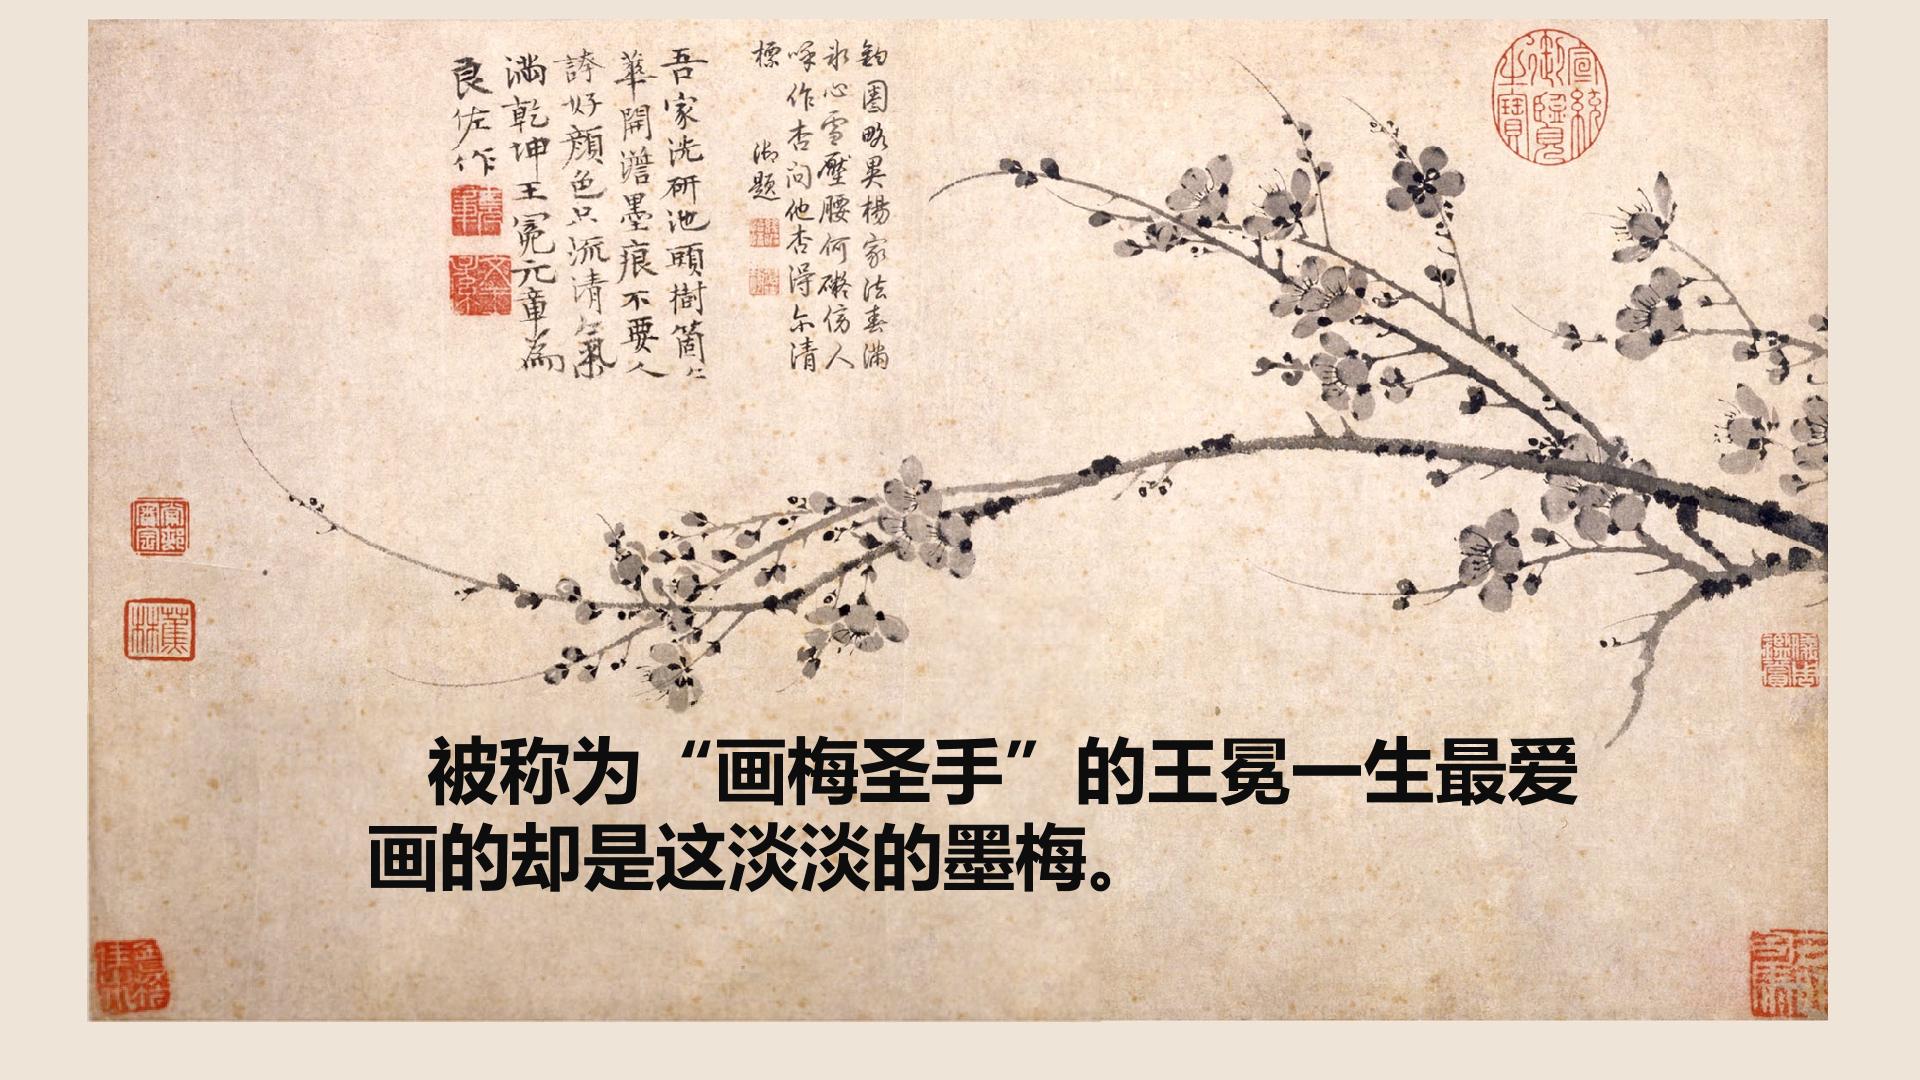 宣統御覽之寶
鈎圈略異楊家法春滿
氷心雪壓腰何礙傍人
呼作杏問他杏得尓清
標 御題
吾家洗研池頭樹箇〻
華開澹墨痕不要人
誇好顏色只流清氣
滿乾坤王冕元章為
良佐作
蕉林
被称为“画梅圣手”的王冕一生最爱
画的却是这淡淡的墨梅。